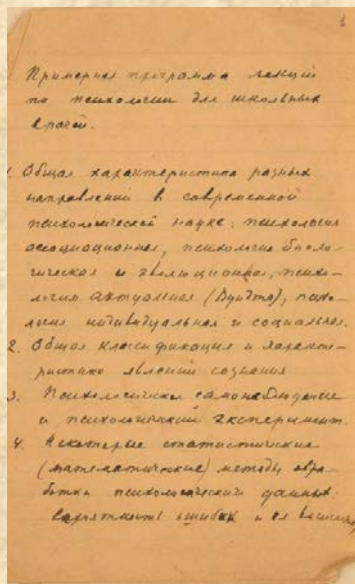 1
Примерная программа лекций
по психологии для школьных
врачей.
1. Общая характеристика разных
направлений в современной
психологической науке: психология
ассоциационная, психология биоло-
гическая и эволюционная, психо-
логия актуальная (Вундта), психо-
логия индивидуальная и социальная.
2. Общая классификация и характе-
ристика явлений сознания
3. Психологическое самонаблюдение
и психологический эксперимент.
4. Некоторые статистические
(математические) методы обра-
ботки психологических данных.
ошибки и её